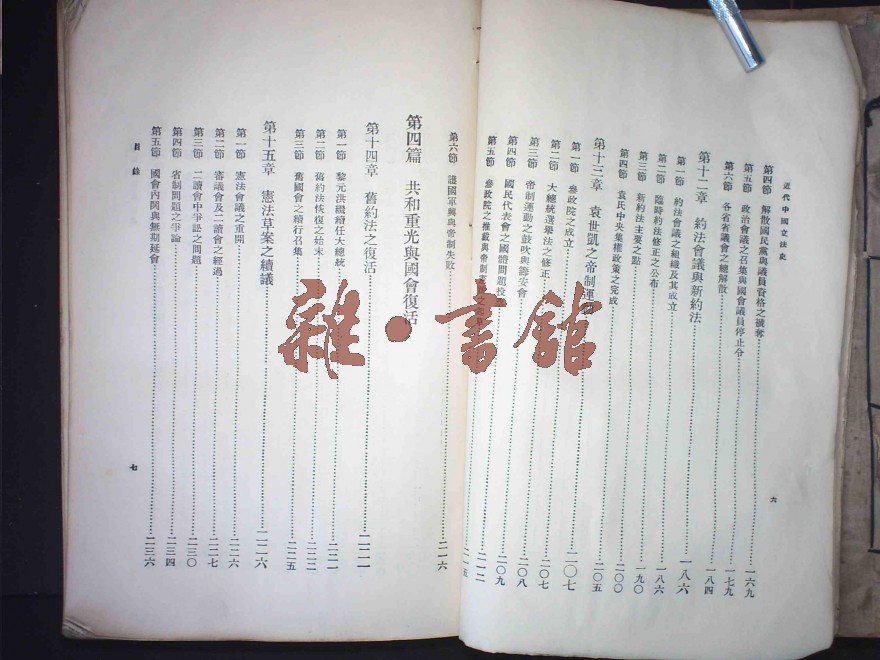 近代中國立法史
第四節 解散國民黨與議員資格之褫奪……一六九
第五節 政治會議之召集與國會議員停止令……一七九
第六節 各省省議會之總解散……一八四
第十二章 約法會議與新約法……一八六
第一節 約法會議之組織及其成立……一八六
第二節 臨時約法修正之公布……一九〇
第三節 新約法主要之點……二〇〇
第四節 袁氏中央集權政策之完成……二〇五
第十三章 袁世凱之帝制運……二〇七
第一節 參政院之成立……二〇七
第二節 大總統選舉法之修正……二〇八
第三節 帝制運動之鼓吹與籌安會……二〇九
第四節 國民代表會之國體問題投……二一二
第五節 參政院之推戴與帝制……二一五
六
第六節 護國軍興與帝制失敗……二一六
第四篇 共和重光與國會復活
第十四章 舊約法之復活……二二一
第一節 黎元洪繼續任大總統……二二一
第二節 舊約法恢復之始末……二二三
第三節 舊國會之續行召集……二二五
第十五章 憲法草案之續議……二二六
第一節 憲法會議之重開……二二六
第二節 審議會及二讀會之經過……二二七
第三節 二讀會中爭訟之問題……二三〇
第四節 省制問題之爭論……二三四
第五節 國會內閧與無期延會……二三六
目錄
七
雜·書館